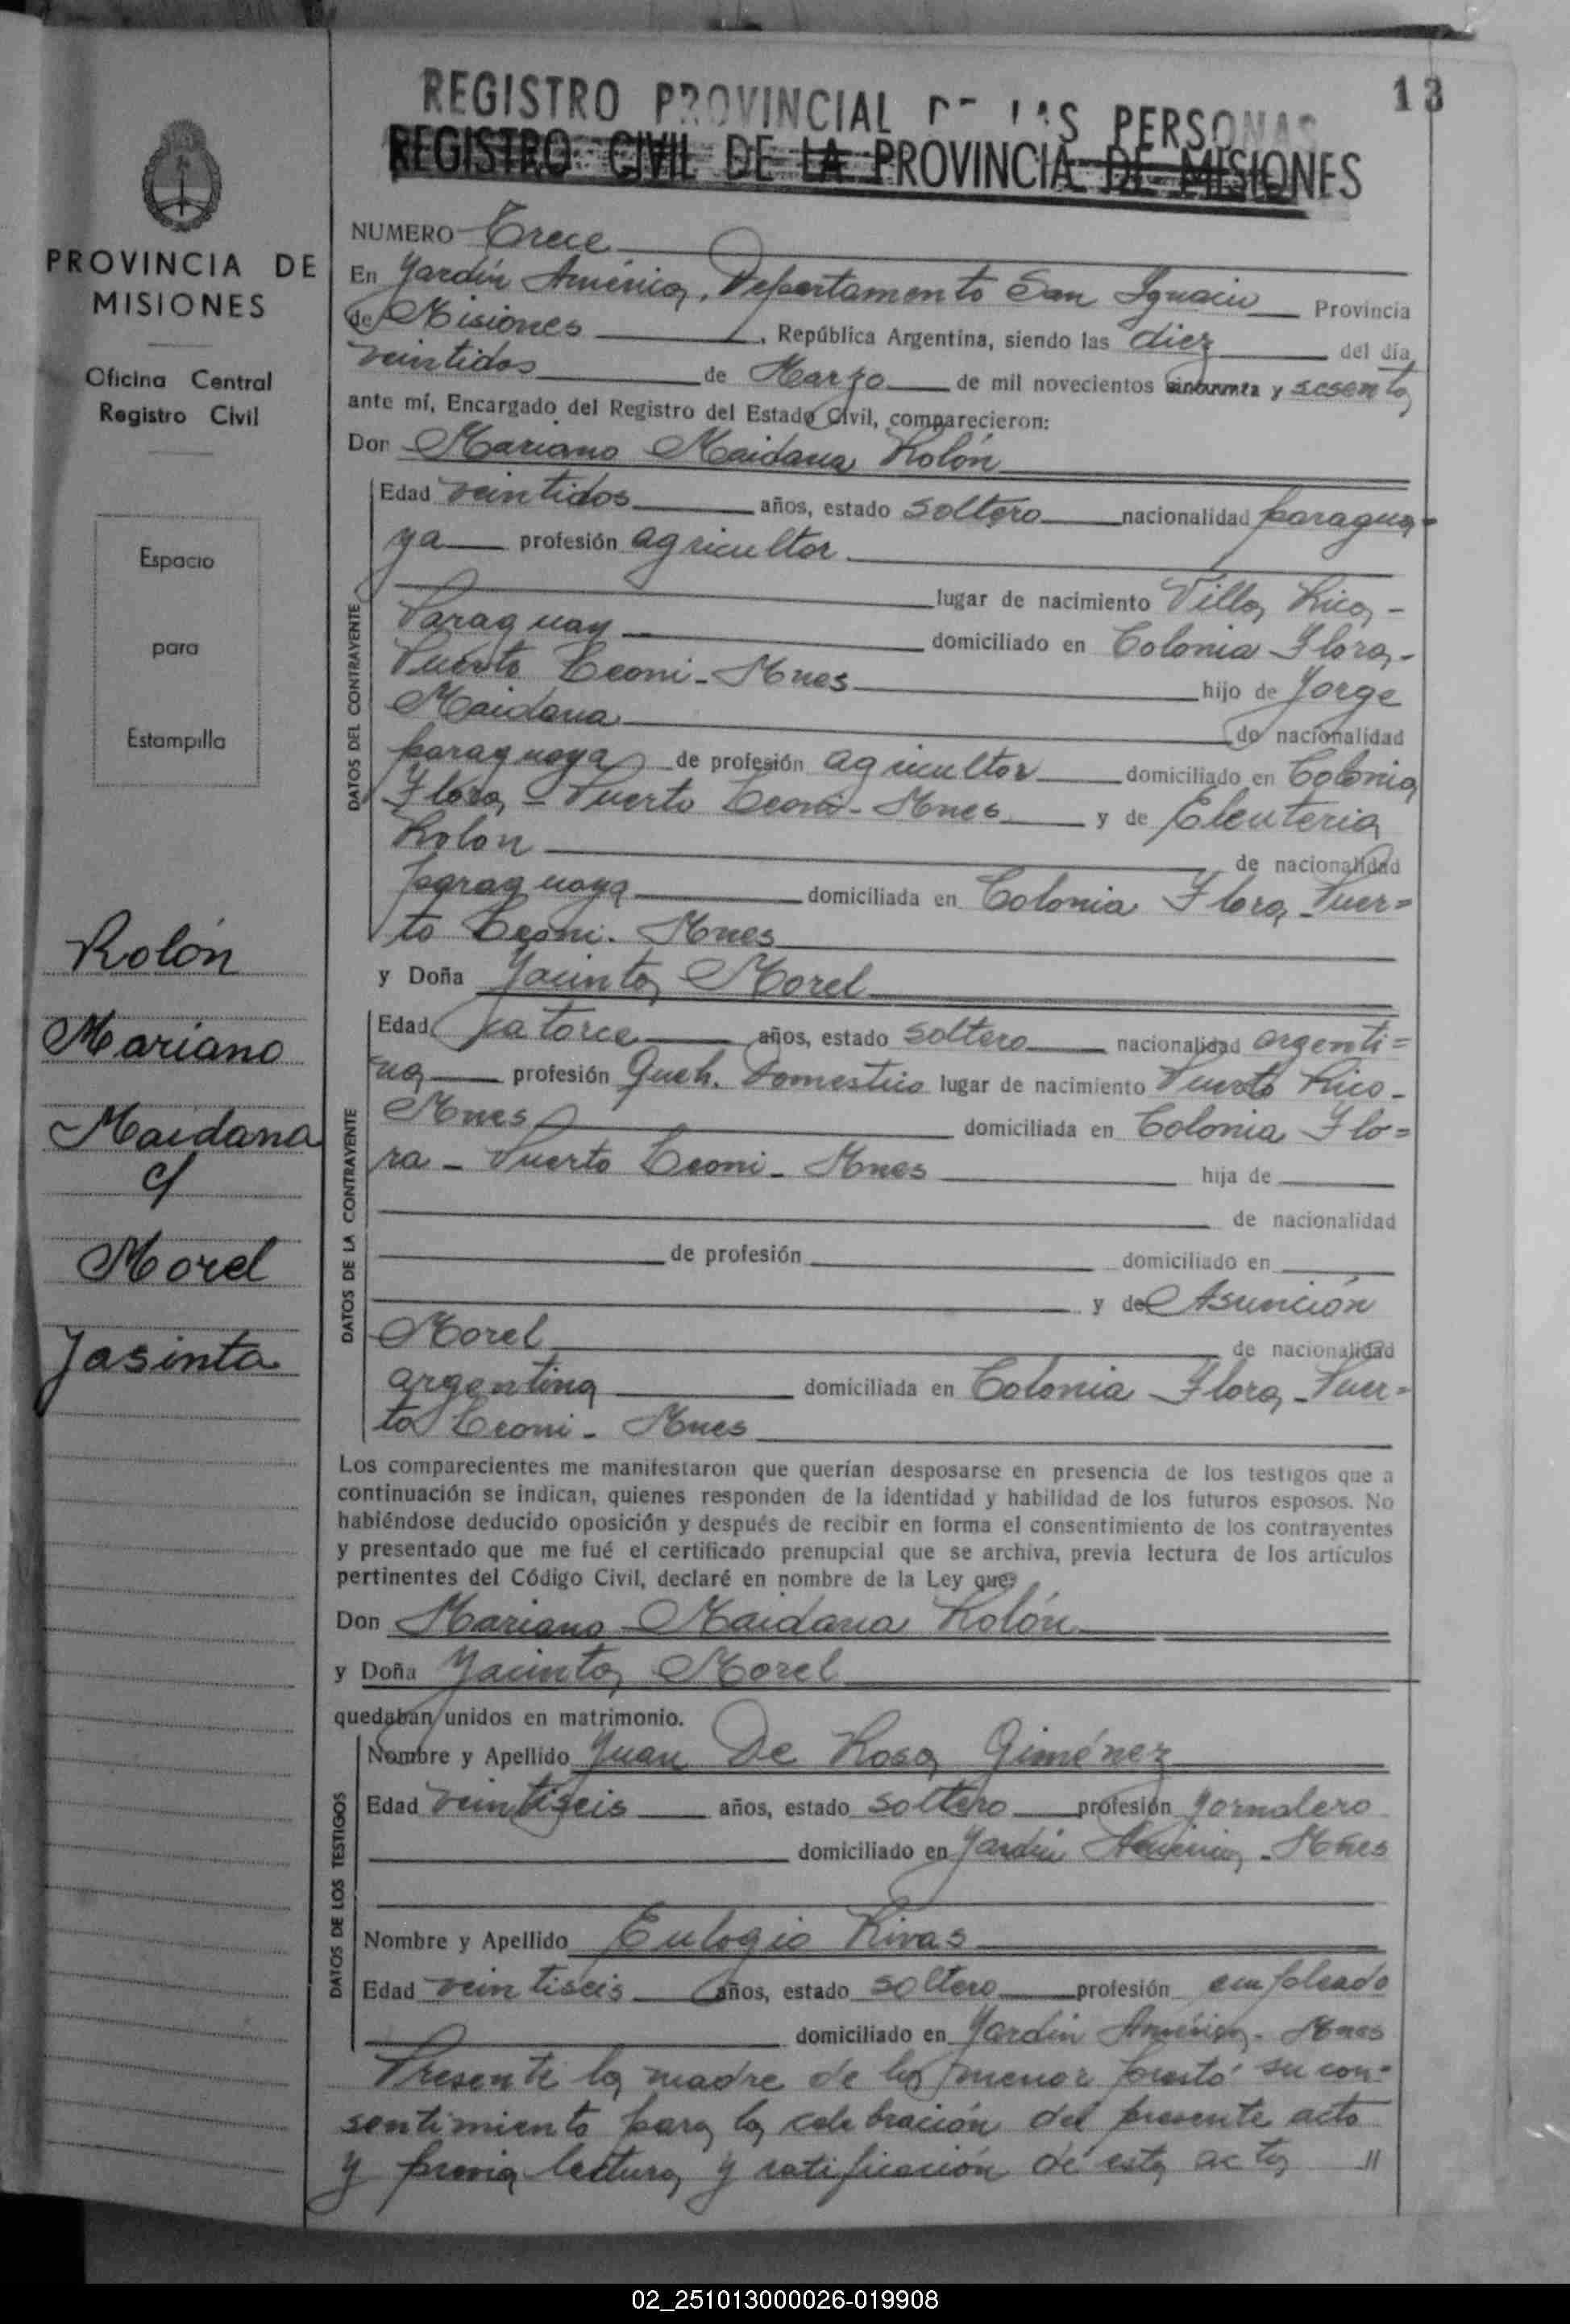 13
REGISTRO PROVINCIAL DE LAS PERSONAS
REGISTRO CIVIL DE LA PROVINCIA DE MISIONES
PROVINCIA DE
MISIONES
Oficina Central
Registro Civil
Espacio
para
Estampilla
Rolón
Mariano
Maidana
c/
Morel
Jasinta
NUMERO Trece
En Jardín América, Departamento San Ignacio Provincia
de Misiones, República Argentina, siendo las diez del día
veintidos de Marzo de mil novecientos cincuenta y sesenta
ante mí, Encargado del Registro del Estado Civil, comparecieron:
Don Mariano Maidana Rolón
DATOS DEL CONTRAYENTE
Edad veintidos años, estado soltero nacionalidad paragua-
ya profesión agricultor
lugar de nacimiento Villa Rica -
Paraguay domiciliado en Colonia Flora -
Puerto Leoni - Mnes hijo de Jorge
Maidana de nacionalidad
paraguaya de profesión agricultor domiciliado en Colonia
Flora - Puerto Leoni - Mnes y de Eleuteria
Rolon de nacionalidad
paraguaya domiciliada en Colonia Flora - Puer=
to Leoni - Mnes
y Doña Jacinta Morel
DATOS DE LA CONTRAYENTE
Edad catorce años, estado soltero nacionalidad argenti=
na profesión Queh. Domestico lugar de nacimiento Puerto Rico -
Mnes domiciliada en Colonia Flo=
ra - Puerto Leoni - Mnes hija de
de nacionalidad
de profesión domiciliado en
y de Asunción
Morel de nacionalidad
argentina domiciliada en Colonia Flora - Puer=
to Leoni - Mnes
Los comparecientes me manifestaron que querían desposarse en presencia de los testigos que a
continuación se indican, quienes responden de la identidad y habilidad de los futuros esposos. No
habiéndose deducido oposición y después de recibir en forma el consentimiento de los contrayentes
y presentado que me fué el certificado prenupcial que se archiva, previa lectura de los artículos
pertinentes del Código Civil, declaré en nombre de la Ley que:
Don Mariano Maidana Rolón
y Doña Jacinta Morel
quedaban unidos en matrimonio.
DATOS DE LOS TESTIGOS
Nombre y Apellido Juan De Rosa Giménez
Edad veintiseis años, estado soltero profesión jornalero
domiciliado en Jardín América - Mnes
Nombre y Apellido Eulogio Rivas
Edad veintiseis años, estado soltero profesión empleado
domiciliado en Jardín América - Mnes
Presente la madre de la menor prestó su con=
sentimiento para la celebración del presente acto
y previa lectura y ratificación de esta acta //
02_251013000026-019908